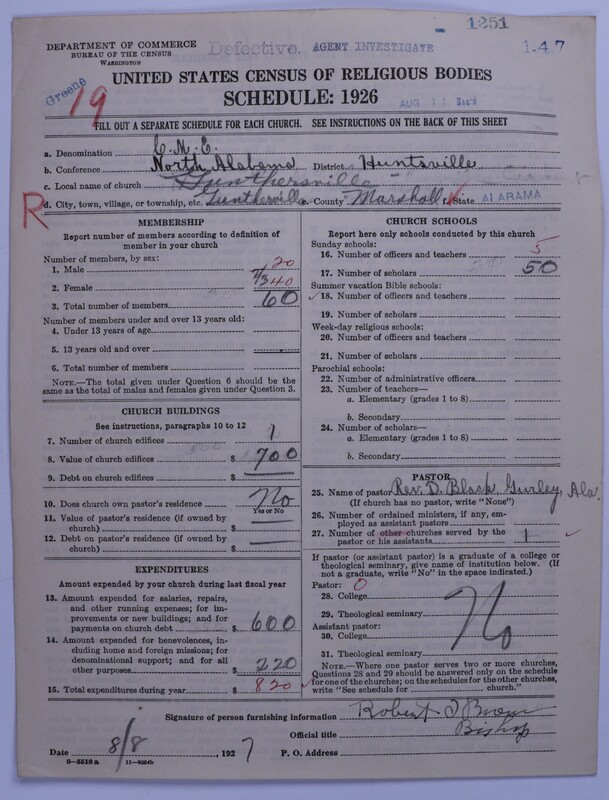 1251
DEPARTMENT OF COMMERCE
BUREAU OF THE CENSUS
WASHINGTON
Defective. AGENT INVESTIGATE
1-47
Greene
19
UNITED STATES CENSUS OF RELIGIOUS BODIES
SCHEDULE: 1926
AUG 11 Rec'd
FILL OUT A SEPARATE SCHEDULE FOR EACH CHURCH. SEE INSTRUCTIONS ON THE BACK OF THIS SHEET
a. Denomination C. M. E.
b. Conference North Alabama District Huntsville
c. Local name of church Gunthersville
R
d. City, town, village, or township, etc. Guntherville e. County Marshall f. State ALABAMA
MEMBERSHIP
Report number of members according to definition of
member in your church
Number of members, by sex:
1. Male 20
2. Female 40
3. Total number of members 60
Number of members under and over 13 years old:
4. Under 13 years of age
5. 13 years old and over
6. Total number of members
NOTE.—The total given under Question 6 should be the
same as the total of males and females given under Question 3.
CHURCH BUILDINGS
See instructions, paragraphs 10 to 12
7. Number of church edifices 1
8. Value of church edifices $ 700
9. Debt on church edifices $
10. Does church own pastor's residence No
Yes or No
11. Value of pastor's residence (if owned by
church) $
12. Debt on pastor's residence (if owned by
church) $
EXPENDITURES
Amount expended by your church during last fiscal year
13. Amount expended for salaries, repairs,
and other running expenses; for im-
provements or new buildings; and for
payments on church debt $ 600
14. Amount expended for benevolences, in-
cluding home and foreign missions; for
denominational support; and for all
other purposes $ 220
15. Total expenditures during year $ 820
CHURCH SCHOOLS
Report here only schools conducted by this church
Sunday schools:
16. Number of officers and teachers 5
17. Number of scholars 50
Summer vacation Bible schools:
18. Number of officers and teachers
19. Number of scholars
Week-day religious schools:
20. Number of officers and teachers
21. Number of scholars
Parochial schools:
22. Number of administrative officers
23. Number of teachers—
a. Elementary (grades 1 to 8)
b. Secondary
24. Number of scholars—
a. Elementary (grades 1 to 8)
b. Secondary
PASTOR
25. Name of pastor Rev. D. Black, Gurley, Ala.
(If church has no pastor, write "None")
26. Number of ordained ministers, if any, em-
ployed as assistant pastors
27. Number of other churches served by the
pastor or his assistants 1
If pastor (or assistant pastor) is a graduate of a college or
theological seminary, give name of institution below. (If
not a graduate, write "No" in the space indicated.)
Pastor: 0
28. College
29. Theological seminary
No
Assistant pastor:
30. College
31. Theological seminary
NOTE.—Where one pastor serves two or more churches,
Questions 28 and 29 should be answered only on the schedule
for one of the churches; on the schedules for the other churches,
write "See schedule for church."
Signature of person furnishing information Robert
Official title Bishop
Date 8/8, 1927 P. O. Address
8-5518 a 11-4034b